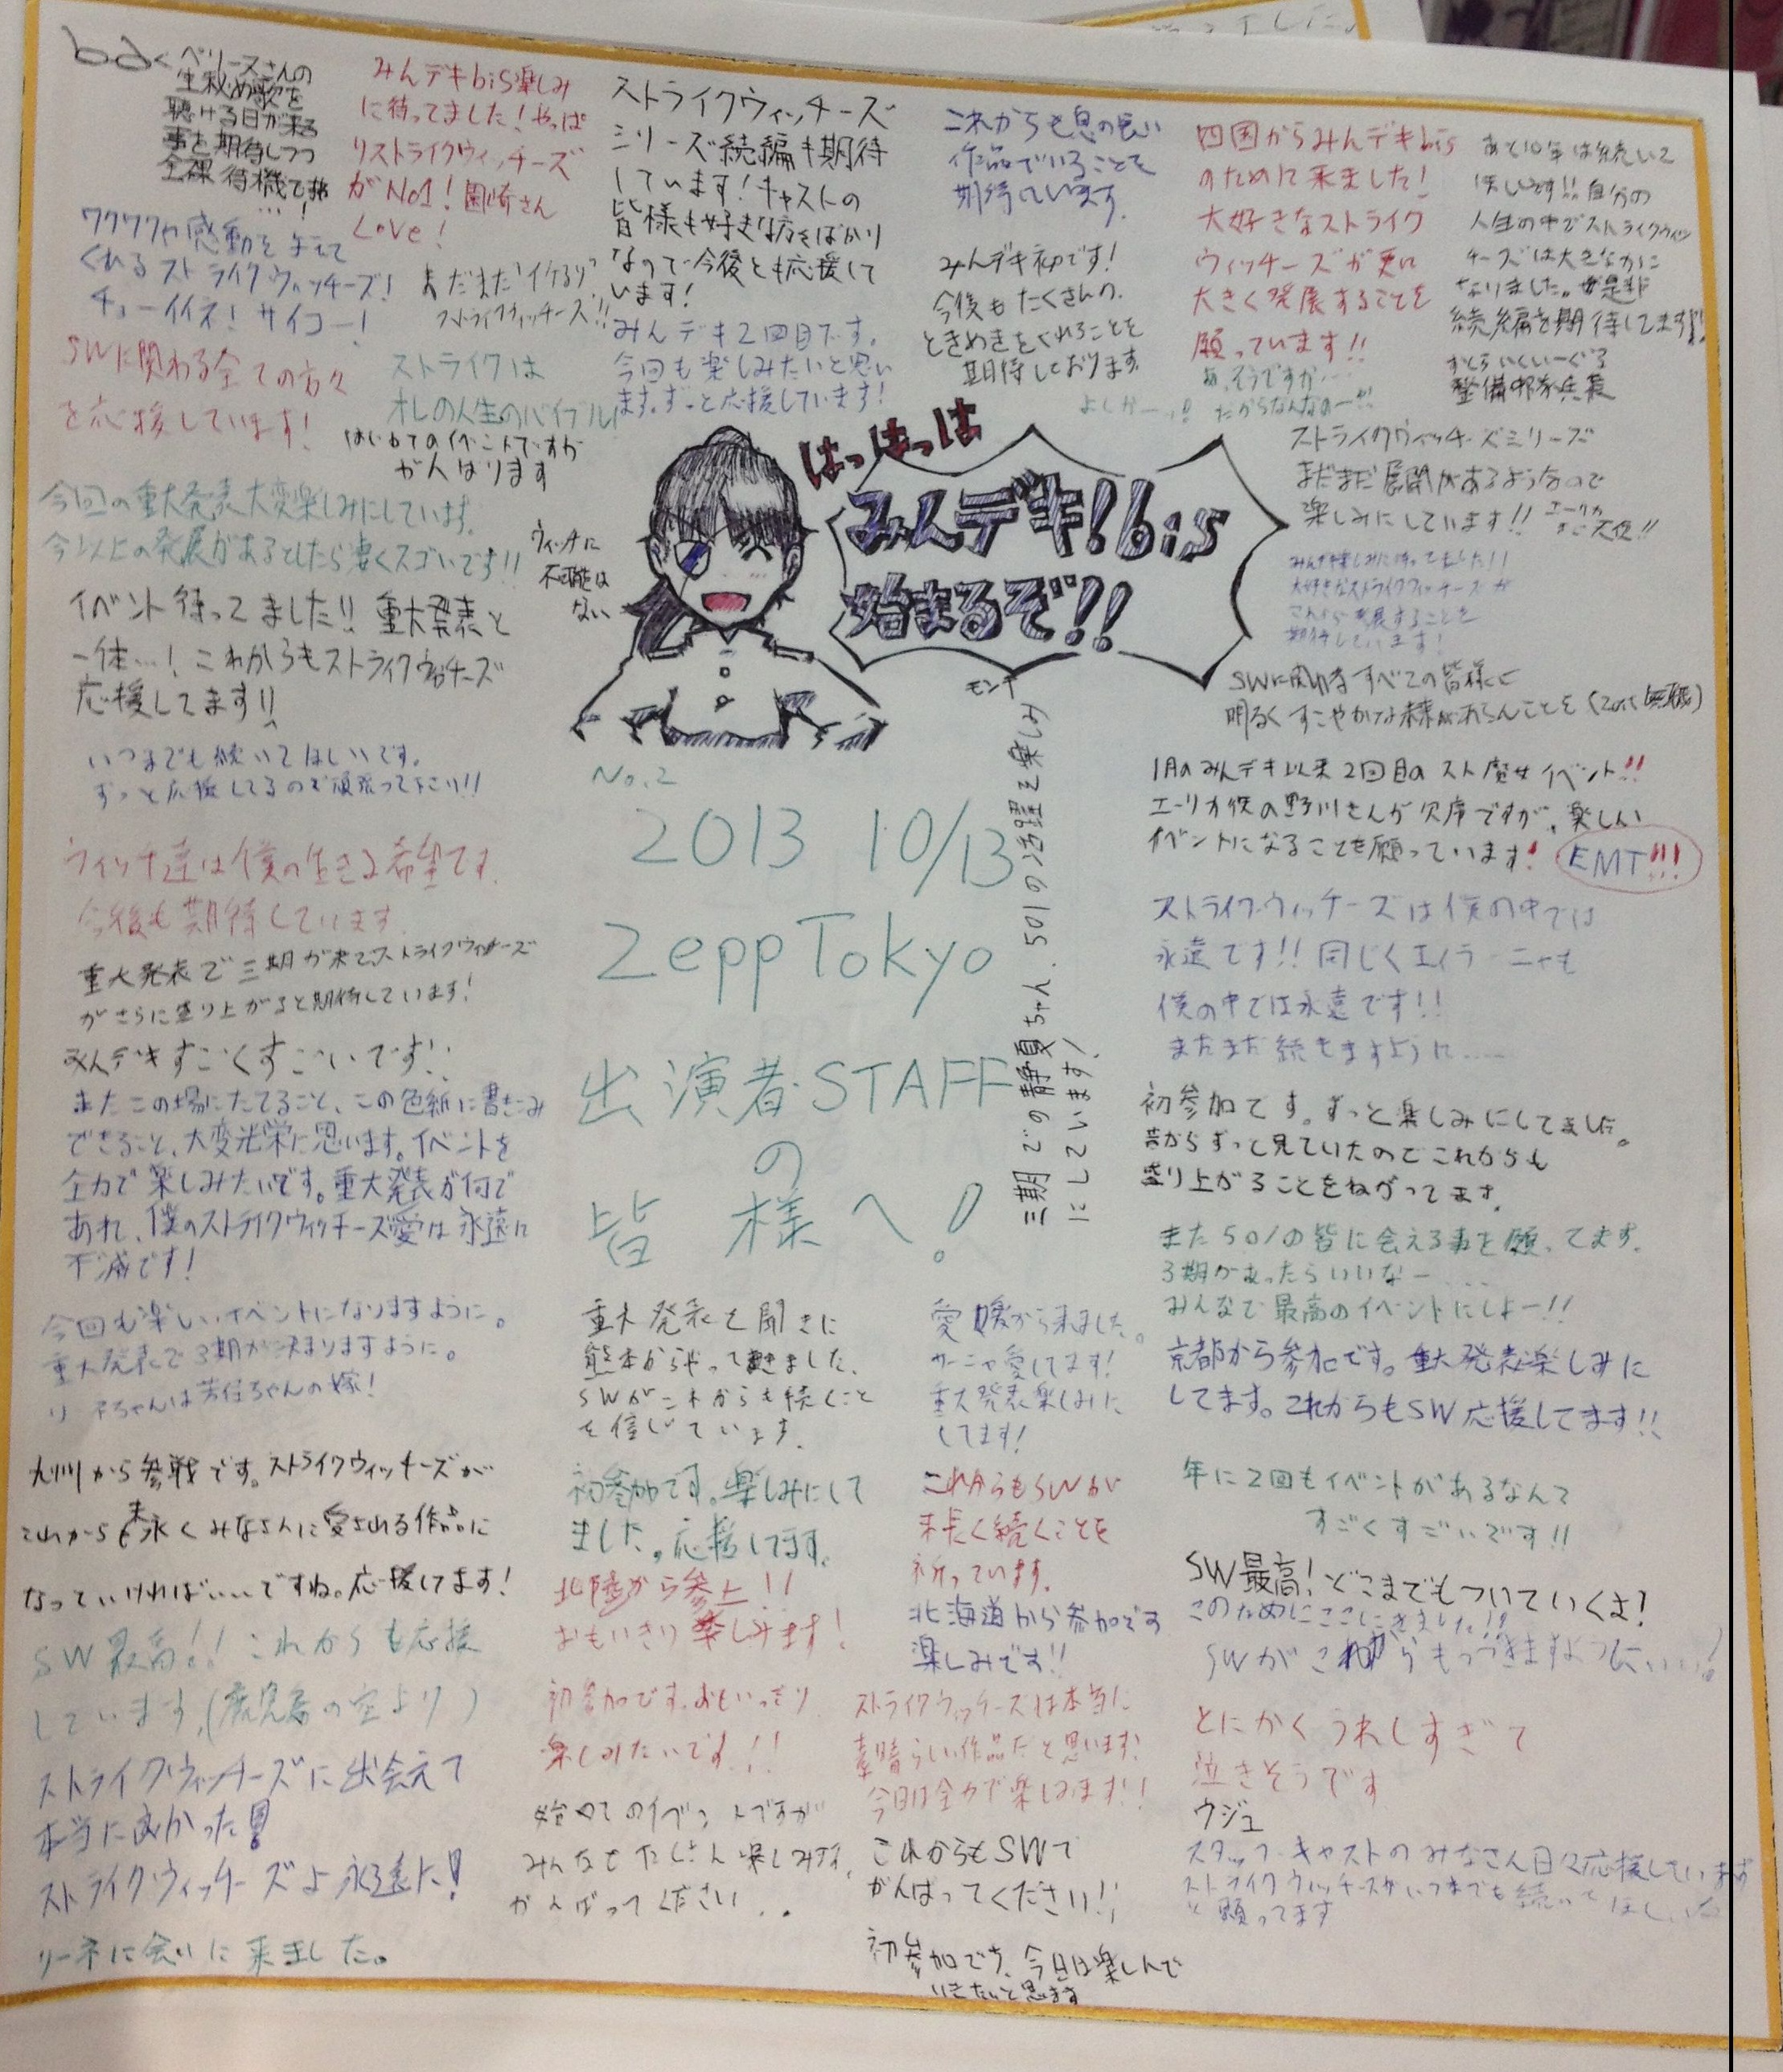 ベリースさんの
生秘め歌を
聴ける日が来る
事を期待しつつ
全裸待機で
…!
みんデキbis楽しみ
に待ってました!やっぱ
りストライクウィッチーズ
がNo1!園崎さん
Love!
ストライクウィッチーズ
シリーズ続編も期待
しています!キャストの
皆様も好きな方をばかり
なので今後とも応援して
います!
これからも息の長い
作品でいることを
期待しています。
四国からみんデキbis
のために来ました!
大好きなストライク
ウィッチーズが更に
大きく発展することを
願っています!!
あと10年は続いて
ほしいです!!自分の
人生の中でストライクウィッ
チーズは大きなかに
なりました。是非
続編を期待してます!!
整備部隊兵長
ワクワクや感動を与えて
くれるストライクウィッチーズ!
チョーイイネ!サイコー!
まだまだイケるり?
ストライクウィッチーズ!!
みんデキ2回目です。
今回も楽しみたいと思い
ます。ずっと応援しています!
みんデキ初です!
今後もたくさんの
ときめきをくれることを
期待しております。
あ、そうですか……
よしかーっ!! だからなんなのー!!!
SWに関わる全ての方々
を応援しています!
ストライクは
オレの人生のバイブル!
はじめてのイベントですが
がんばります
はっはっは
みんデキ!bis
始まるぞ!!
モンナ
ストライクウィッチーズシリーズ
まだまだ展開があるようなので
楽しみにしています!! エーリカ
マジ天使!!
今回の重大発表大変楽しみにしています。
今以上の発展があるとしたら凄くスゴいです!!
ウィッチに
不可能は
ない
みんデキ楽しみに待ってました!!
大好きなストライクウィッチーズが
これから発展することを
期待しています!
イベント待ってました!!重大発表と
一体…!これからもストライクウィッチーズ
応援してます!!
SWに関わるすべての皆様に
明るくすこやかな未来があらんことを
いつまでも続いてほしいです。
ずっと応援してるので頑張って下さい!!
1月のみんデキ以来2回目のスト魔女イベント!!
エーリカ役の野川さんが欠席ですが、楽しい
イベントになることを願っています! EMT!!!
No.2
2013 10/13
Zepp Tokyo
出演者・STAFF
の
皆様へ!
三期での静夏ちゃん、501の活躍を楽しみ
にしています!
ウィッチ達は僕の生きる希望です。
今後も期待しています。
重大発表で三期が来て、ストライクウィッチーズ
がさらに盛り上がると期待しています!
みんデキすごくすごいです!!
またこの場にたてること、この色紙に書きこみ
できること、大変光栄に思います。イベントを
全力で楽しみたいです。重大発表が何で
あれ、僕のストライクウィッチーズ愛は永遠に
不滅です!
ストライクウィッチーズは僕の中では
永遠です!!同じくエイラーニャも
僕の中では永遠です!!
まだまだ続きますように……
初参加です。ずっと楽しみにしてました。
昔からずっと見ていたのでこれからも
盛り上がることをねがってます。
また501の皆に会える事を願ってます。
3期があったらいいなー……
みんなで最高のイベントにしよー!!
今回も楽しいイベントになりますように。
重大発表で3期が決まりますように。
リーネちゃんは芳佳ちゃんの嫁!
重大発表を聞きに
熊本からやって来ました、
SWがこれからも続くこと
を信じています。
愛媛から来ました。
サーニャ愛してます!
重大発表楽しみに
してます!
京都から参加です。重大発表楽しみに
してます。これからもSW応援してます!!
九州から参戦です。ストライクウィッチーズが
これからも末永くみなさんに愛される作品に
なっていければいいですね。応援してます!
初参加です。楽しみにして
ました。応援してます。
これからもSWが
末長く続くことを
祈っています。
年に2回もイベントがあるなんて
すごくすごいです!!
北陸から参上!!
おもいきり楽しみます!
北海道から参加です
楽しみです!!
SW最高!どこまでもついていくよ!
このためにここにきました!!
SWがこれからもつづきますように…!
SW最高!!これからも応援
しています。(鹿児島の空より)
初参加です。おもいっきり
楽しみたいです!!
ストライクウィッチーズは本当に
素晴らしい作品だと思います。
今日は全力で楽しみます!!
とにかくうれしすぎて
泣きそうです
ウジュ
ストライクウィッチーズに出会えて
本当に良かった!
ストライクウィッチーズよ永遠に!
始めてのイベントですが
がんばってください..
これからもSWで
がんばってください!!
スタッフ・キャストのみなさん日々応援しています
ストライクウィッチーズがいつまでも続いてほしいな
と願ってます
リーネに会いに来ました。
初参加です、今日は楽しんで
いきたいと思います